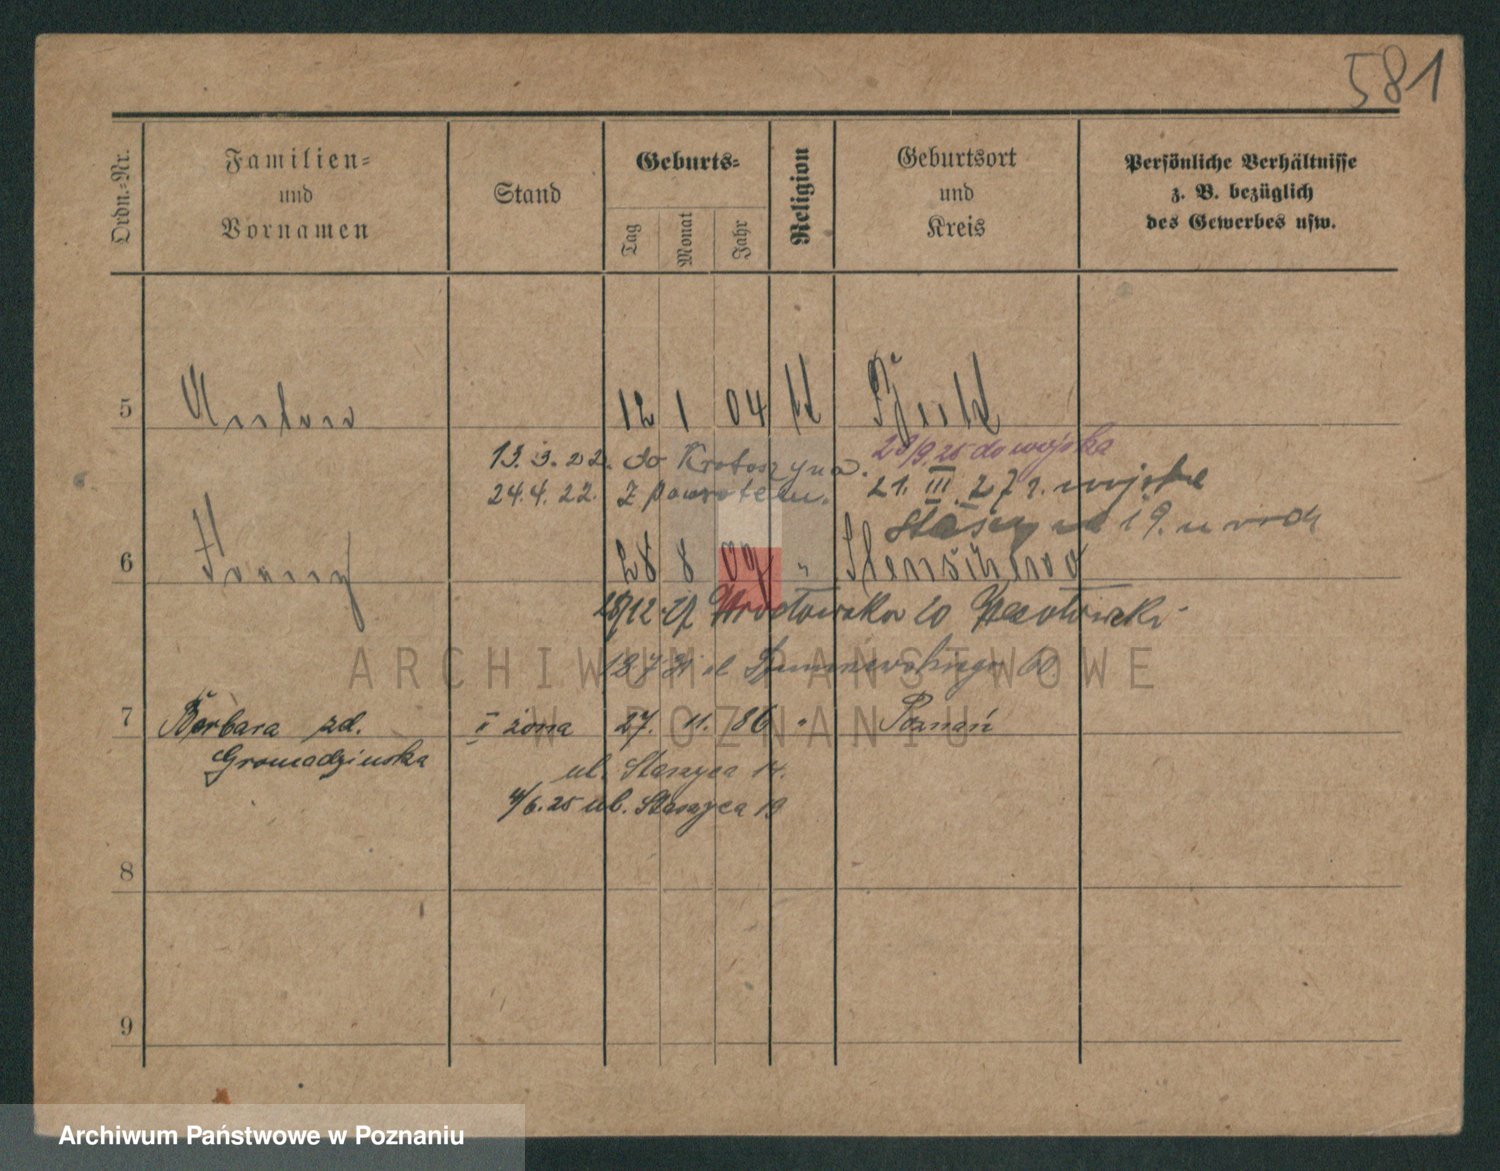 581
Ordn.-Nr.
Familien-
und
Vornamen
Stand
Geburts-
Tag
Monat
Jahr
Religion
Geburtsort
und
Kreis
Persönliche Verhältnisse
z. B. bezüglich
des Gewerbes usw.
5 Anton 12 1 04
13.3.22. do Krotoszyna.
24.4.22. z powrotem.
20/9.25 do wojska
21. III 27 r. wojska
19.
6 Franz 28 8 09 "
20
18 7 31 ul 60
7 Barbara zd. II żona 27. 11. 86 " Poznań
Gromadzinska
ul. Staszyca 14.
4/6.25 ul. Staszyca 19
8
9
ARCHIWUM PAŃSTWOWE
W POZNANIU
Archiwum Państwowe w Poznaniu